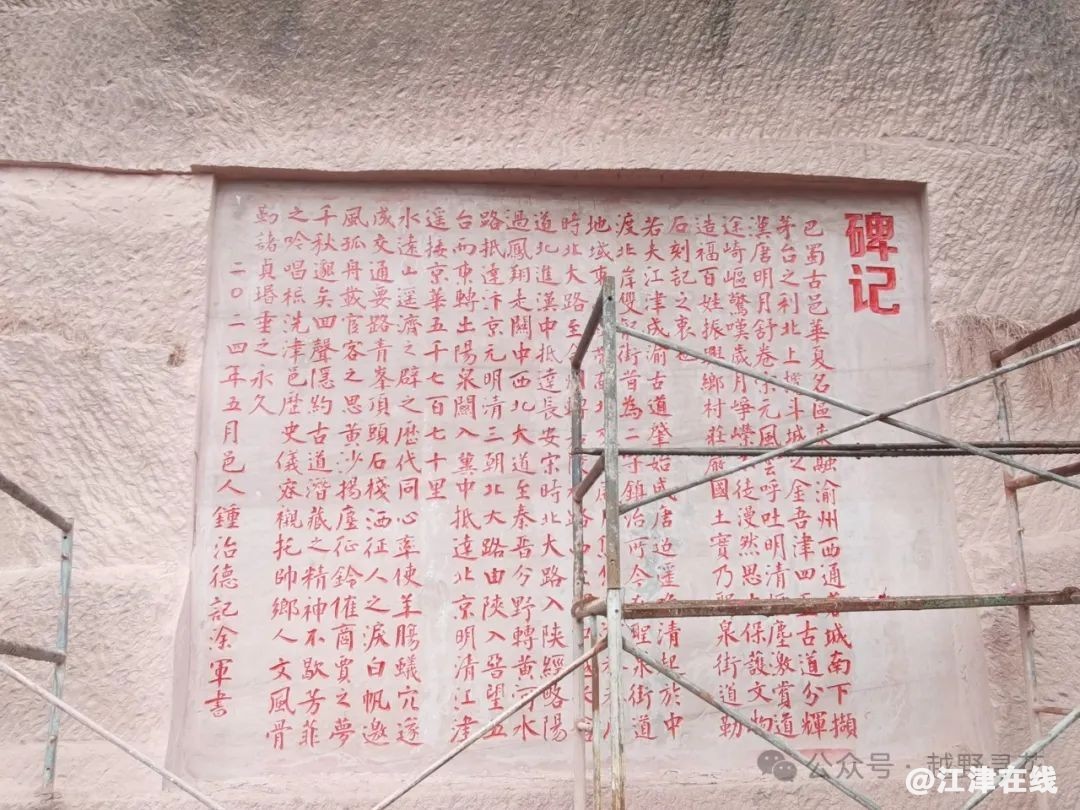 碑记
巴蜀古邑華夏名區東融渝州西通蓉城南下擷
茅台之利北上攬斗城之金吾津四古道分輝
漢唐明月舒卷宋元風雲呼吐明清塵敷賞道
途崎嶇驚嘆歲月崢嶸徒漫然思保護文物
造福百姓振興鄉村莊嚴國土實乃聖泉街道勒
石刻記之衷也
若夫江津成渝古道肇始盛唐迢遥清起於中
渡北岸雙街昔為二鎮治所今聖泉街道
地域東
時北大路至州
道北進漢中抵達長安宋時北大路入陝經略陽
過鳳翔走關中西北大道至秦晉分野轉黄河水
路抵達汴京元明清三朝北大路由陝入晉望五
台而東轉土陽泉關入冀中抵達北京明清江津
遥接京華五千七百七十里
水遠山遥濟之辟之歷代同心率使羊腸蟻穴遂
成交通要路青峯頂頭石棧洒征人之淚白帆邀
風孤舟載官客之思黄沙揚塵征鈴催商賈之夢
千秋邈矣四聲隱約古道潛藏之精神不歇芳菲
之吟唱標洗津邑歷史儀容襯托帥鄉人文風骨
勒諸貞珉重之永久
二0二四年五月邑人鍾治德記涂軍書
公众号·越野寻
@江津在线